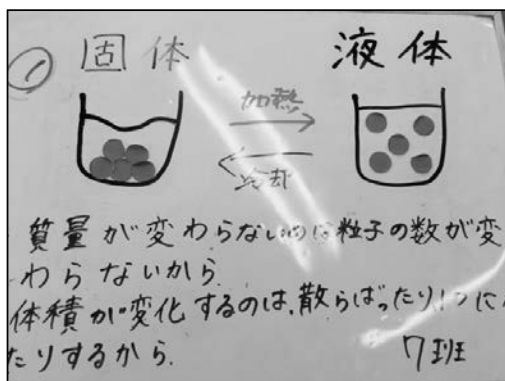 ① 固体 液体
加熱
冷却
質量が変わらないのは粒子の数が変
わらないから.
体積が変化するのは、散らばったり1つに
たりするから. 7班